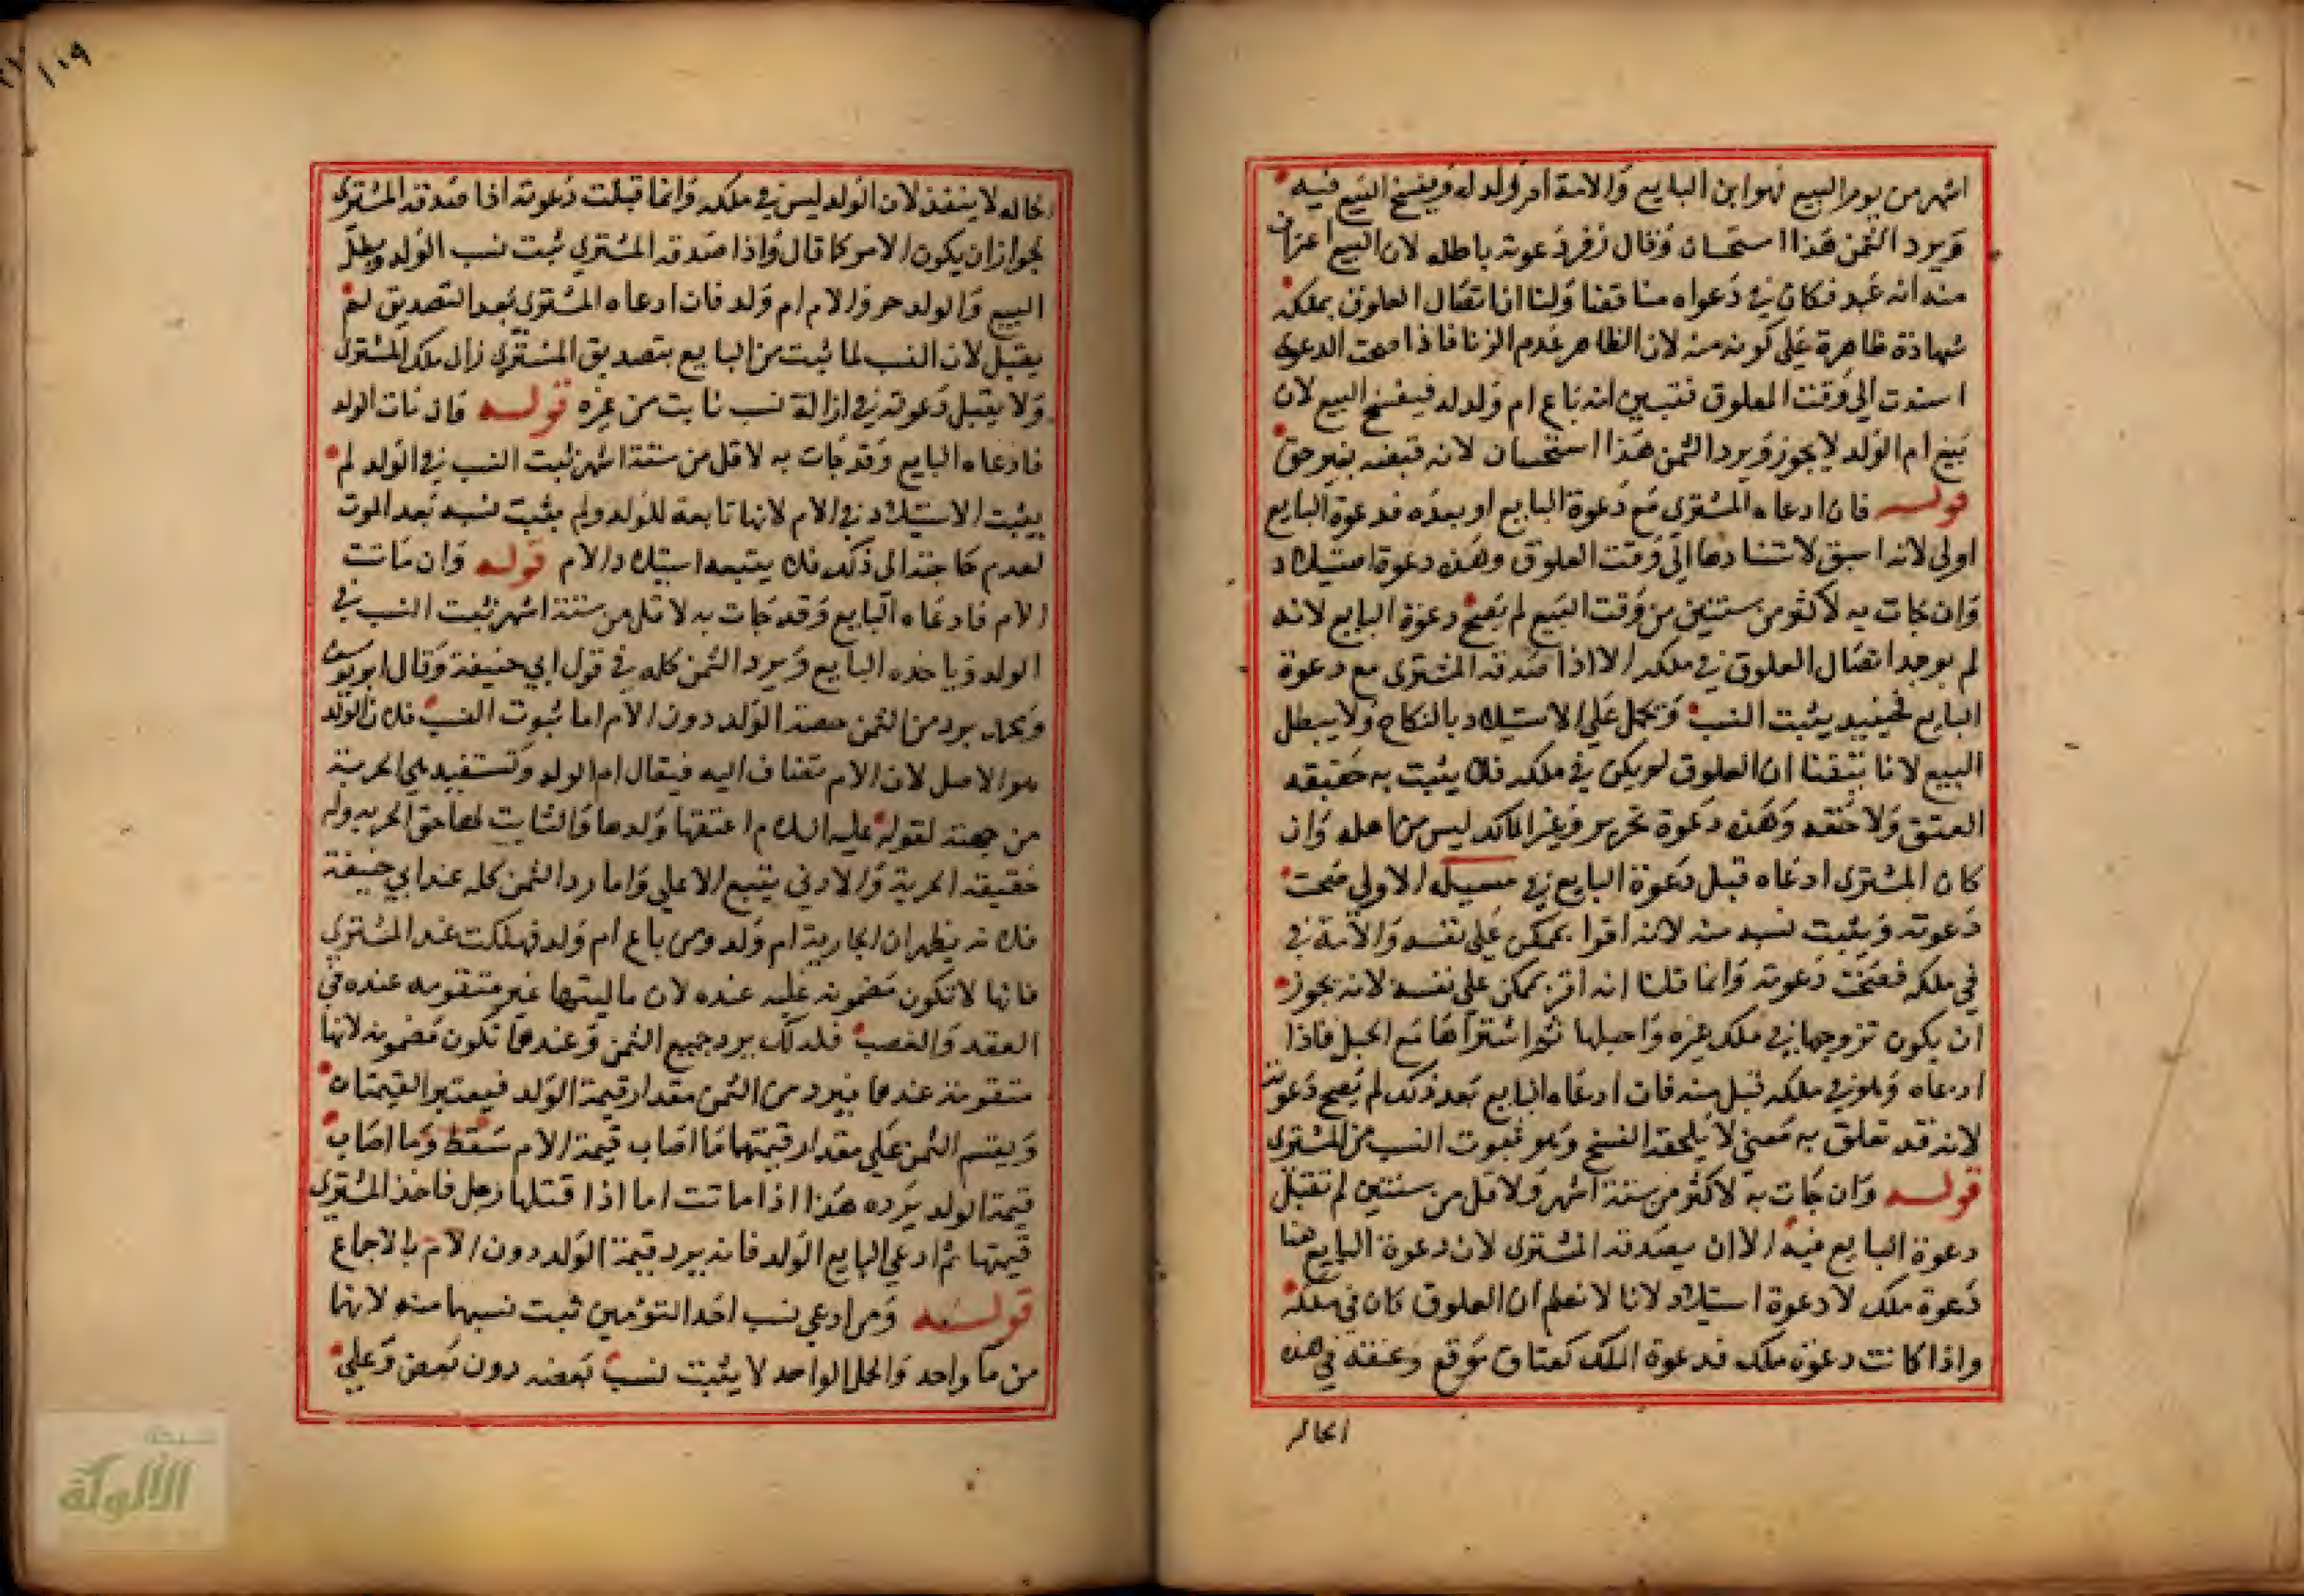 اشهر من يوم البيع فهو ابن البايع والامة ام ولد له ويفسخ البيع فيه
ويرد الثمن هذا استحسان وقال زفر دعوته باطله لان البيع اعتراف
منه انه عبد فكان في دعواه مناقضا ولنا ان اتصال العلوق بملكه
شهادة ظاهرة على كونه منه لان الظاهر عدم الزنا فاذا صحت الدعوى
استندت الى وقت العلوق فتبين انه باع ام ولد له فيفسخ البيع لان
بيع ام الولد لا يجوز ويرد الثمن هذا استحسان لانه قبضه بغير حق
قوله فان ادعاه المشترى مع دعوة البايع او بعده فدعوة البايع
اولى لانه اسبق لاستنادها الى وقت العلوق وهذه دعوة استيلاد
وان جات به لاكثر من سنتين من وقت البيع لم تصح دعوة البايع لانه
لم يوجد اتصال العلوق في ملكه الا اذا صدقه المشترى مع دعوة
البايع فحينيد يثبت النسب وتحمل على الاستيلاد بالنكاح ولا يبطل
البيع لانا تيقنا ان العلوق لم يكن في ملكه فلا يثبت به حقيقه
العتق ولا حقه وهذه دعوة تحرير وغير المالك ليس من اهله وان
كان المشترى ادعاه قبل دعوة البايع في مسيلة الاولى صحت
دعوته ويثبت نسبه منه لانه اقرا بممكن على نفسه والامة في
في ملكه فصحت دعوته وانما قلنا انه اقر بممكن على نفسه لانه يجوز
ان يكون تزوجها في ملك غيره واحبلها ثم اشتراها مع الحبل فاذا
ادعاه وهو في ملكه قبل منه فان ادعاه البايع بعد ذلك لم تصح دعوته
لانه قد تعلق به معنى لا يلحقه الفسخ وهو ثبوت النسب من المشترى
قوله وان جات به لاكثر من ستة اشهر ولاقل من سنتين لم تقبل
دعوة البايع فيه الا ان يصدقه المشترى لان دعوة البايع هنا
دعوة ملك لا دعوة استيلاد لانا لا نعلم ان العلوق كان في ملكه
واذا كانت دعوة ملك فدعوة الملك كعتاق موقع وعتقه في هذه
الحاله
الحاله لا ينفذ لان الولد ليس في ملكه وانما قبلت دعوته اذا صدقه المشترى
لجواز ان يكون الامر كما قال واذا صدقه المشتري ثبت نسب الولد وبطل
البيع والولد حر والام ام ولد فان ادعاه المشترى بعد التصديق لم
يقبل لان النسب لما ثبت من البايع بتصديق المشتري زال ملك المشترى
ولا يقبل دعوته في ازالة نسب ثابت من غيره قوله فان مات الولد
فادعاه البايع وقد جات به لاقل من ستة اشهر يثبت النسب في الولد لم
يثبت الاستيلاد في الام لانها تابعة للولد ولم يثبت نسبه بعد الموت
لعدم حاجته الى ذلك فلا يتبعه استيلاد الام قوله وان ماتت
الام فادعاه البايع وقد جات به لاقل من ستة اشهر يثبت النسب في
الولد وياخذه البايع ويرد الثمن كله في قول ابي حنيفة وقال ابو يوسف
ومحمد يرد من الثمن حصة الولد دون الام اما ثبوت النسب فلان الولد
هو الاصل لان الام تضاف اليه فيقال ام الولد وتستفيد هي الحرية
من جهته لقوله عليه السلام اعتقها ولدها والثابت لها حق الحريه وله
حقيقه الحرية والادنى يتبع الاعلى واما رد الثمن كله عند ابي حنيفة
فلانه يظهر ان الجارية ام ولد ومن باع ام ولد فهلكت عند المشتري
فانها لا تكون مضمونه عليه عنده لان ماليتها غير متقومه عنده في
العقد والغصب فلذلك يرد جميع الثمن وعندهما تكون مضمونه لانها
متقومة عندهما فيرد من الثمن مقدار قيمة الولد فيعتبر القيمتان
ويقسم الثمن على مقدار قيمتهما فما اصاب قيمة الام سقط وما اصاب
قيمة الولد يرده هذا اذا ماتت اما اذا قتلها رجل فاخذ المشترى
قيمتها ثم ادعى البايع الولد فانه يرد قيمة الولد دون الام بالاجماع
قوله ومن ادعى نسب احد التومين ثبت نسبهما منه لانهما
من ما واحد والحمل الواحد لا يثبت نسب بعضه دون بعض وعلى
١٠٩
شبكة
الألوكة